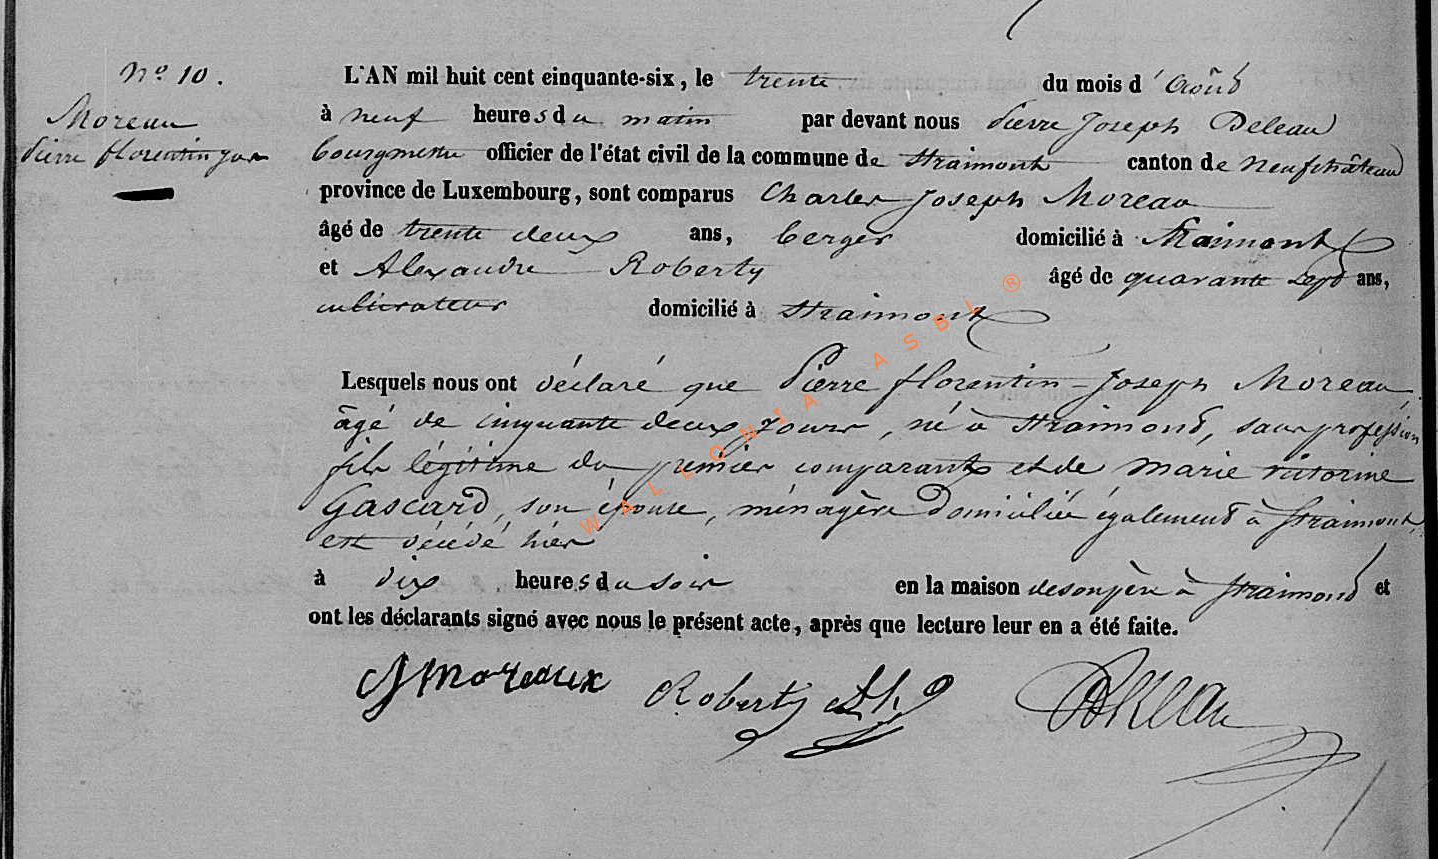 N° 10.
Moreau
Pierre florentin Jos
L'AN mil huit cent cinquante-six, le trente du mois d'Août
à neuf heures du matin par devant nous Pierre Joseph Deleau
bourgmestre officier de l'état civil de la commune de Straimont canton de Neufchâteau
province de Luxembourg, sont comparus Charles Joseph Moreau
âgé de trente deux ans, berger domicilié à Straimont
et Alexandre Roberty âgé de quarante sept ans,
cultivateur domicilié à Straimont
Lesquels nous ont déclaré que Pierre florentin-Joseph Moreau,
âgé de cinquante deux jours, né à Straimont, sans profession
fils légitime du premier comparant et de Marie
Gascard, son épouse, ménagère domiciliée également à Straimont,
est décédé hier
à dix heures du soir en la maison de son père à Straimont et
ont les déclarants signé avec nous le présent acte, après que lecture leur en a été faite.
CJ Moreaux Roberty Deleau
WALLONIA ASBL ®